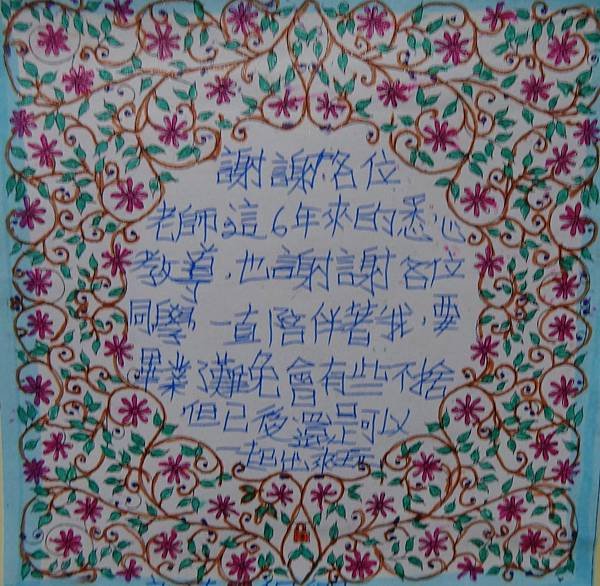 謝謝各位
老師這6年來的悉心
教導，也謝謝各位
同學一直陪伴著我，要
畢業了難免會有些不捨
但已後還是可以
一起出來玩